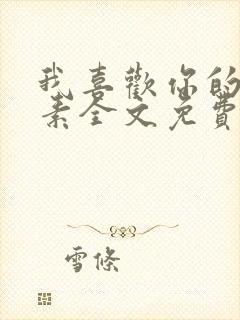 我喜歡你的
素全文免費
雪條